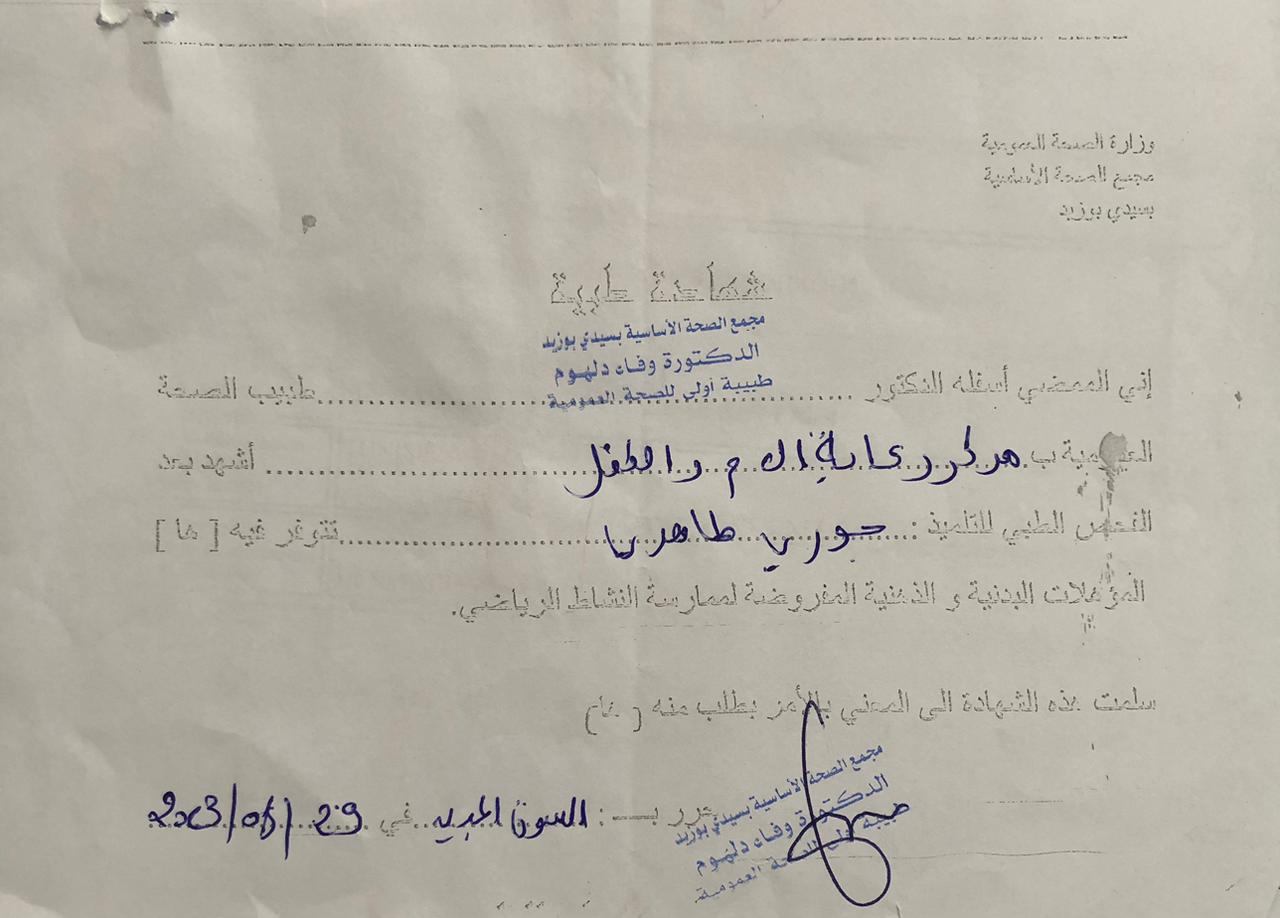 وزارة الصحة العمومية
مجمع الصحة الأساسية
بسيدي بوزيد
شهادة طبية
مجمع الصحة الأساسية بسيدي بوزيد
الدكتورة وفاء دلهوم
طبيبة أولى للصحة العمومية
إني الممضي أسفله الدكتور ........ طبيب الصحة
العمومية ب مركز رعاية الام والطفل ........ أشهد بعد
الفحص الطبي للتلميذ : جوري طاهري ........ تتوفر فيه [ ها ]
المؤهلات البدنية و الذهنية المفروضة لممارسة النشاط الرياضي.
سلمت هذه الشهادة الى المعني بالأمر بطلب منه ( ها)
حرر بـــ : السوق الجديد في 29 /
مجمع الصحة الأساسية بسيدي بوزيد
الدكتورة وفاء دلهوم
طبيبة أولى للصحة العمومية